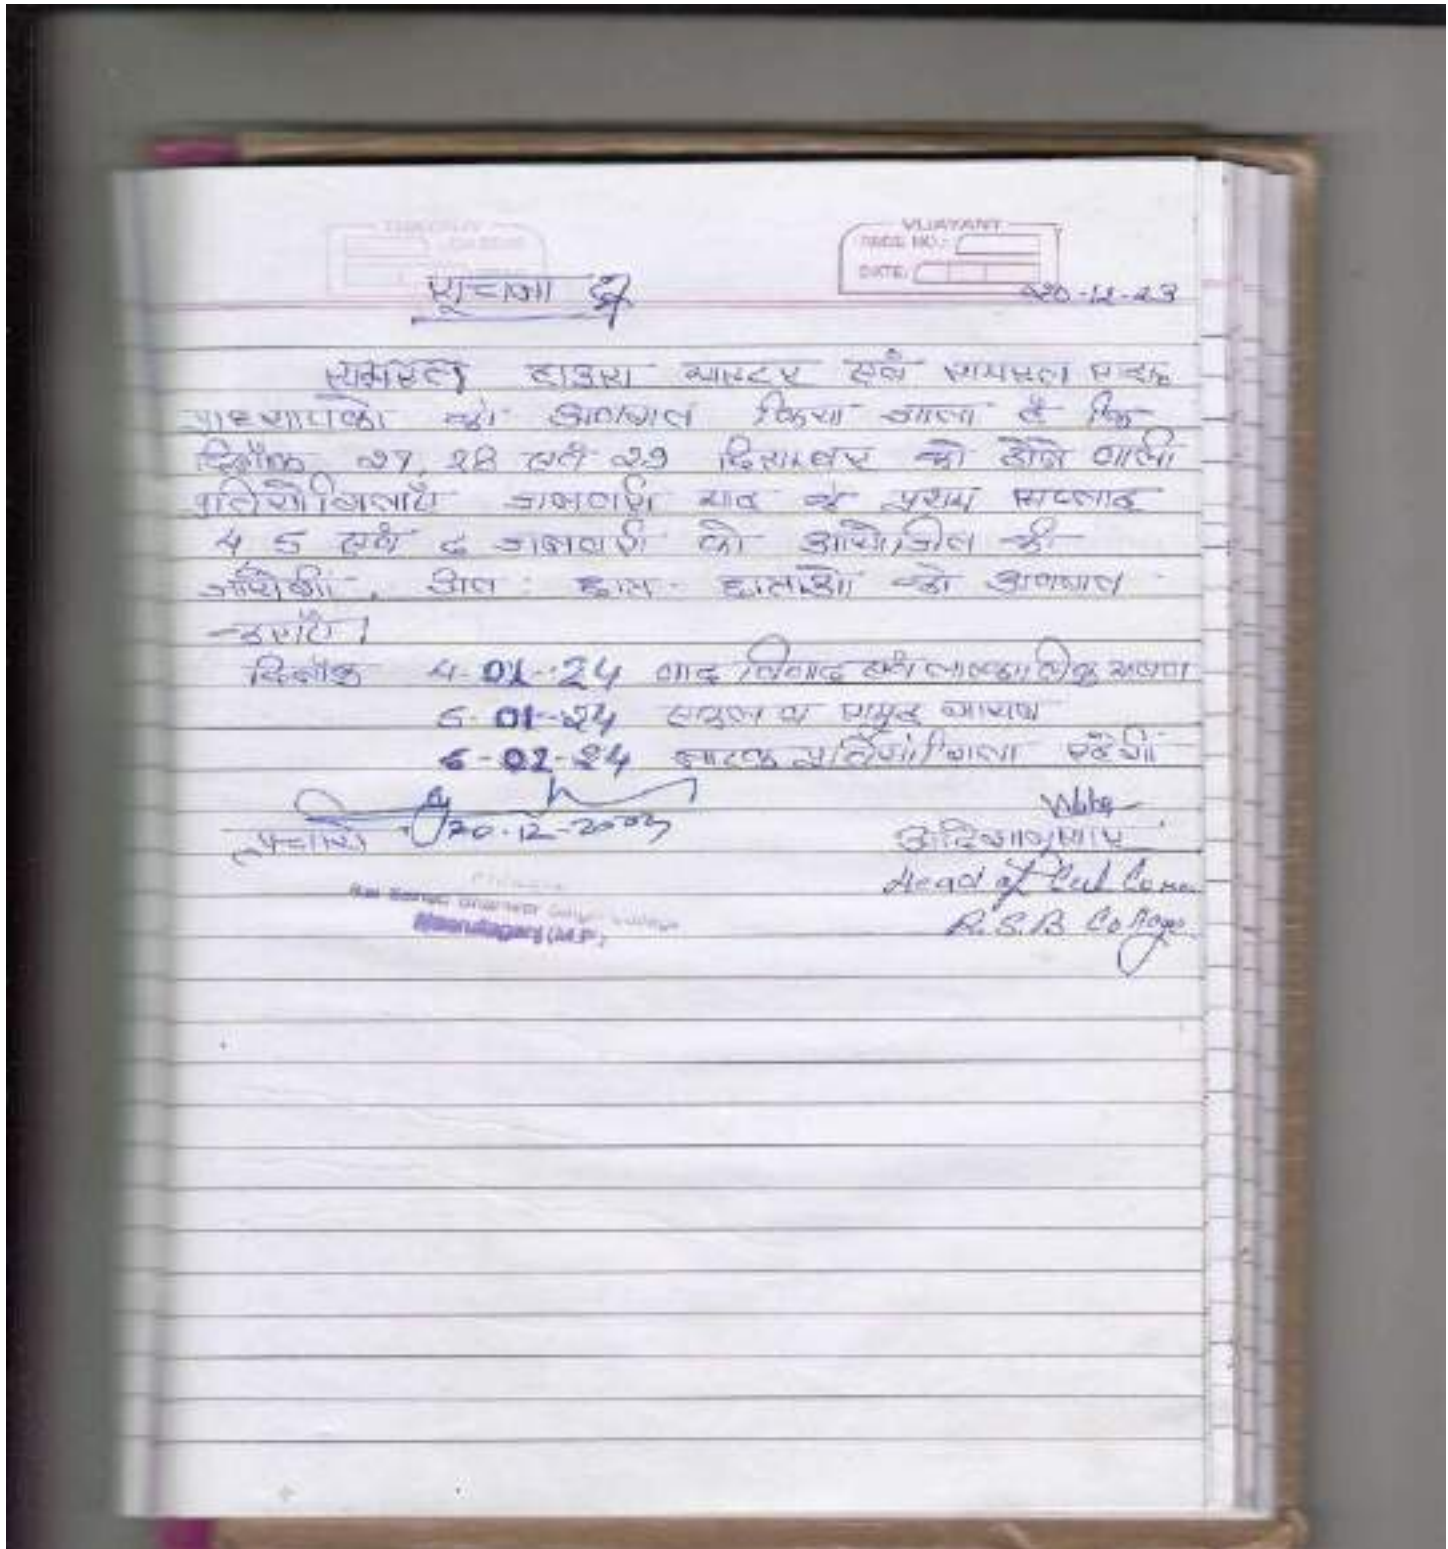 VIJAYANT
PAGE NO.:
DATE:
सूचना
20-12-23
समस्त हाउस मास्टर एवं समस्त
प्राध्यापको को अवगत किया जाता है कि
दिनाँक 27, 28 एवं 29 दिसम्बर को होने वाली
प्रतियोगिताएँ जनवरी माह के प्रथम सप्ताह
4 5 एवं 6 जनवरी को आयोजित की
जाएँगी. अतः छात्र-छात्राओ को अवगत
कराएँ।
दिनाँक 4-01-24 वाद विवाद एवं तात्कालिक भाषण
5-01-24 एकल व समूह गायन
6-01-24 नाटक प्रतियोगिता रहेगी
20-12-2023
Head of Cul Comm
R.S.B College